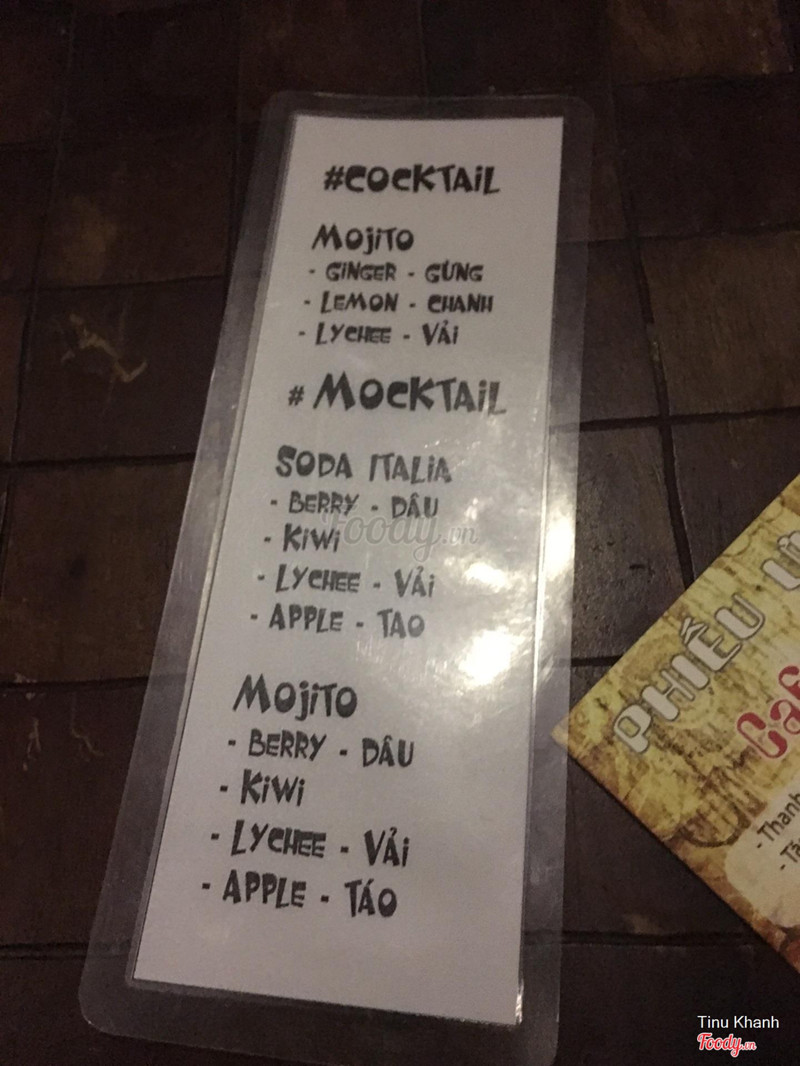 #COCKTAIL
MOJITO
- GINGER - GỪNG
- LEMON - CHANH
- LYCHEE - VẢI
# MOCKTAIL
SODA ITALIA
- BERRY - DÂU
- KIWI
- LYCHEE - VẢI
- APPLE - TAO
MOJITO
- BERRY - DÂU
- KIWI
- LYCHEE - VẢI
- APPLE - TÁO
Foody.vn
PHIẾU
- Thanh
Tinu Khanh
Foody.vn